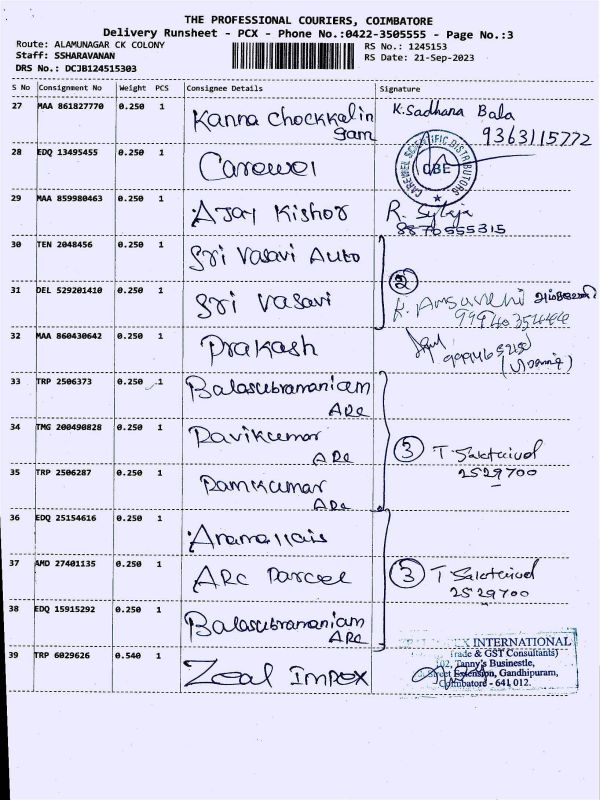 THE PROFESSIONAL COURIERS, COIMBATORE
Delivery Runsheet - PCX - Phone No.:0422-3505555 - Page No.:3
Route: ALAMUNAGAR CK COLONY RS No.: 1245153
Staff: SSHARAVANAN RS Date: 21-Sep-2023
DRS No.: DCJB124515303
S No Consignment No Weight PCS Consignee Details Signature
27 MAA 861827770 0.250 1 Kanna Chockkalin gam K.Sadhana Bala
9363115772
28 EDQ 13495455 0.250 1 Carewel
CAREWEL SCIENTIFIC DISTRIBUTORS
CBE
29 MAA 859980463 0.250 1 Ajay Kishor R. Sylaja
8870555315
30 TEN 2048456 0.250 1 Sri Vasavi Auto
2
31 DEL 529201410 0.250 1 Sri Vasavi
32 MAA 860430642 0.250 1 Prakash
33 TRP 2506373 0.250 1 Balasubramaniam
ARC
34 TMG 200490828 0.250 1 Ravikumar 3
ARC
35 TRP 2506287 0.250 1 Ramkumar 2529700
ARC
36 EDQ 25154616 0.250 1
37 AMD 27401135 0.250 1 ARC Parcel 3
2529700
38 EDQ 15915292 0.250 1 Balasubramaniam
ARC
39 TRP 6029626 0.540 1 Zeal Impex
INTERNATIONAL
Trade & GST Consultants)
102, Tanny's Businestle,
Street Extension, Gandhipuram,
Coimbatore - 641 012.